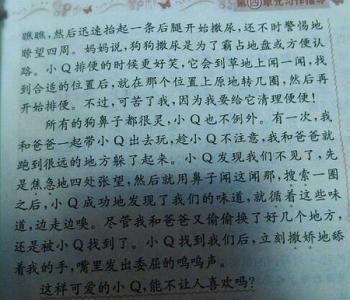 第四单元习作指导
瞧瞧,然后迅速抬起一条后腿开始撒尿,还不时警惕地
瞭望四周。妈妈说,狗狗撒尿是为了霸占地盘或方便认
路。小Q排便的时候更好笑,它会到草地上闻一闻,找
到合适的位置后,就在那个位置上原地转几圈,然后再
开始排便。不过,可苦了我,因为我要给它清理便便!
所有的狗鼻子都很灵,小Q也不例外。有一次,我
和爸爸一起带小Q出去玩,趁小Q不注意,我和爸爸就
跑到很远的地方躲了起来。小Q发现我们不见了,先
是焦急地四处张望,然后就用鼻子闻这闻那,搜索一圈
之后,小Q成功地发现了我们的味道,就循着这些味
道,边走边嗅。尽管我和爸爸又偷偷换了好几个地方,
还是被小Q找到了。小Q找到我们后,立刻撒娇地舔
着我的手,嘴里发出委屈的呜呜声。
这样可爱的小Q,能不让人喜欢吗?